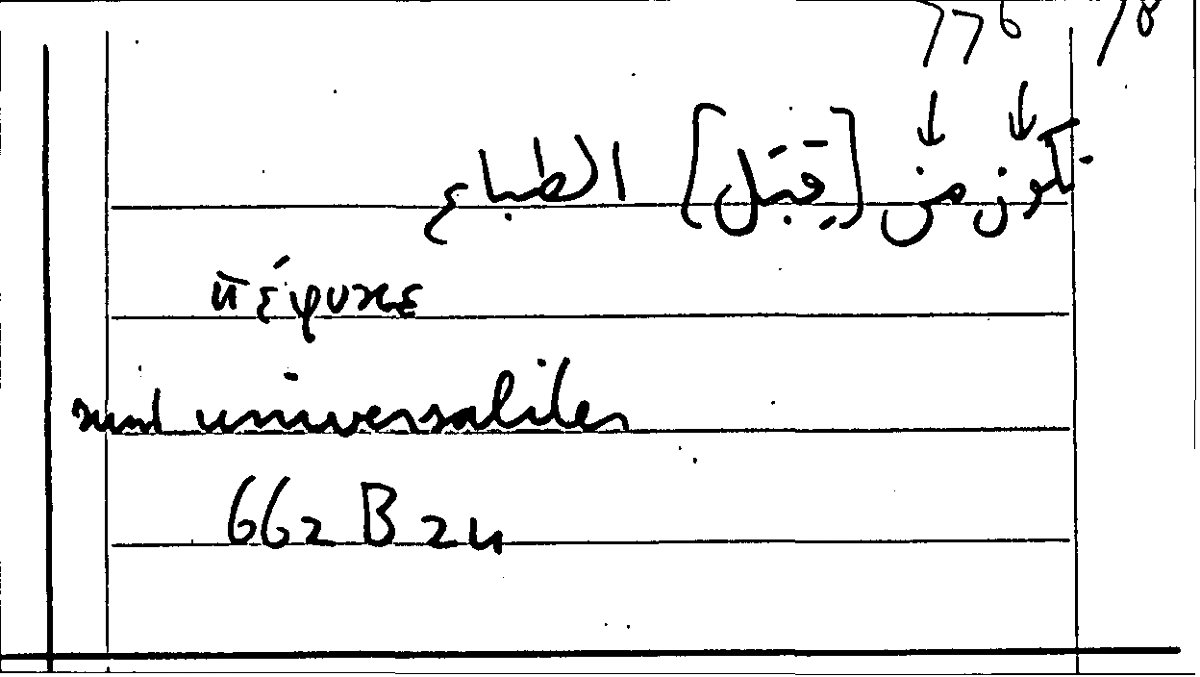 776 78
تكون من [قِبَل] الطباع
πέφυκε
sunt universaliter
662 B 24